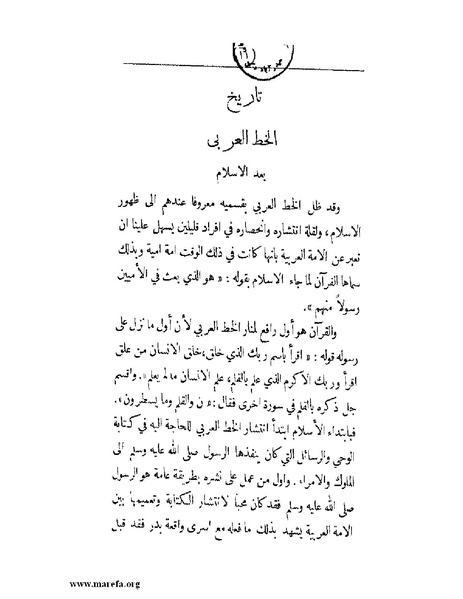 تاريخ
الخط العربي
بعد الاسلام
وقد ظل الخط العربي بقسميه معروفا عندهم الى ظهور
الاسلام، ولقلة انتشاره وانحصاره في افراد قليلين يسهل علينا ان
نعبر عن الامة العربية بانها كانت في ذلك الوقت امة امية وبذلك
سماها القرآن لما جاء الاسلام بقوله : « هو الذي بعث في الأميين
رسولاً منهم ».
والقرآن هو أول رافع لمنار الخط العربي لأن أول ما نزل على
رسوله قوله : « اقرأ باسم ربك الذي خلق، خلق الانسان من علق
اقرأ وربك الأكرم الذي علم بالقلم، علم الانسان ما لم يعلم». واقسم
جل ذكره بالقلم في سورة اخرى فقال : «ن والقلم وما يسطرون».
فبابتداء الأسلام ابتدأ انتشار الخط العربي للحاجة اليه في كتابة
الوحي والرسائل التي كان ينفذها الرسول صلى الله عليه وسلم الى
الملوك والامراء . واول من عمل على نشره بطريقة عامة هو الرسول
صلى الله عليه وسلم فقد كان محباً لانتشار الكتابة وتعميمها بين
الامة العربية يشهد بذلك ما فعله مع اسرى واقعة بدر فقد قبل
www.marefa.org